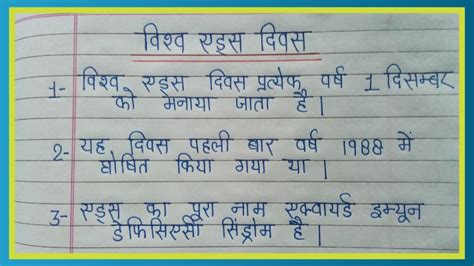 विश्व एड्स दिवस
1- विश्व एड्स दिवस प्रत्येक वर्ष 1 दिसम्बर
को मनाया जाता है।
2- यह दिवस पहली बार वर्ष 1988 में
घोषित किया गया था।
3- एड्स का पूरा नाम एक्वायर्ड इम्यून
डेफिसिएंसी सिंड्रोम है।